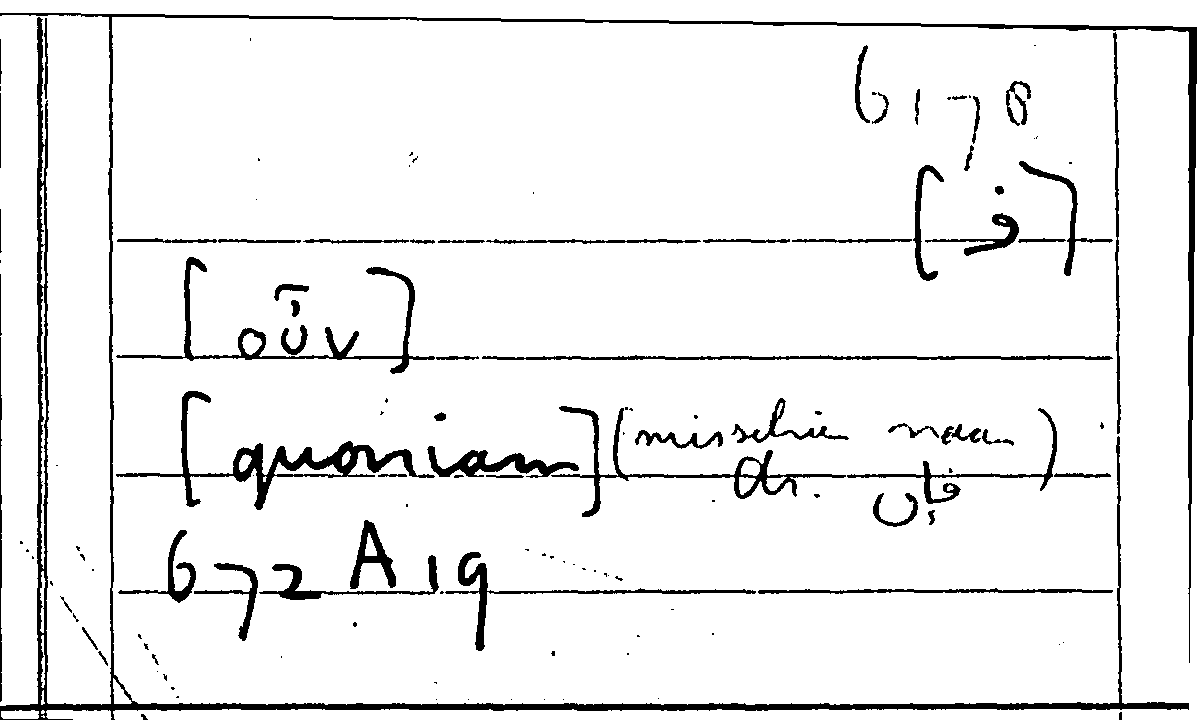 6170
[ف]
[οὖν]
[quoniam] (misschien naar
ar. فإن)
672 A 19